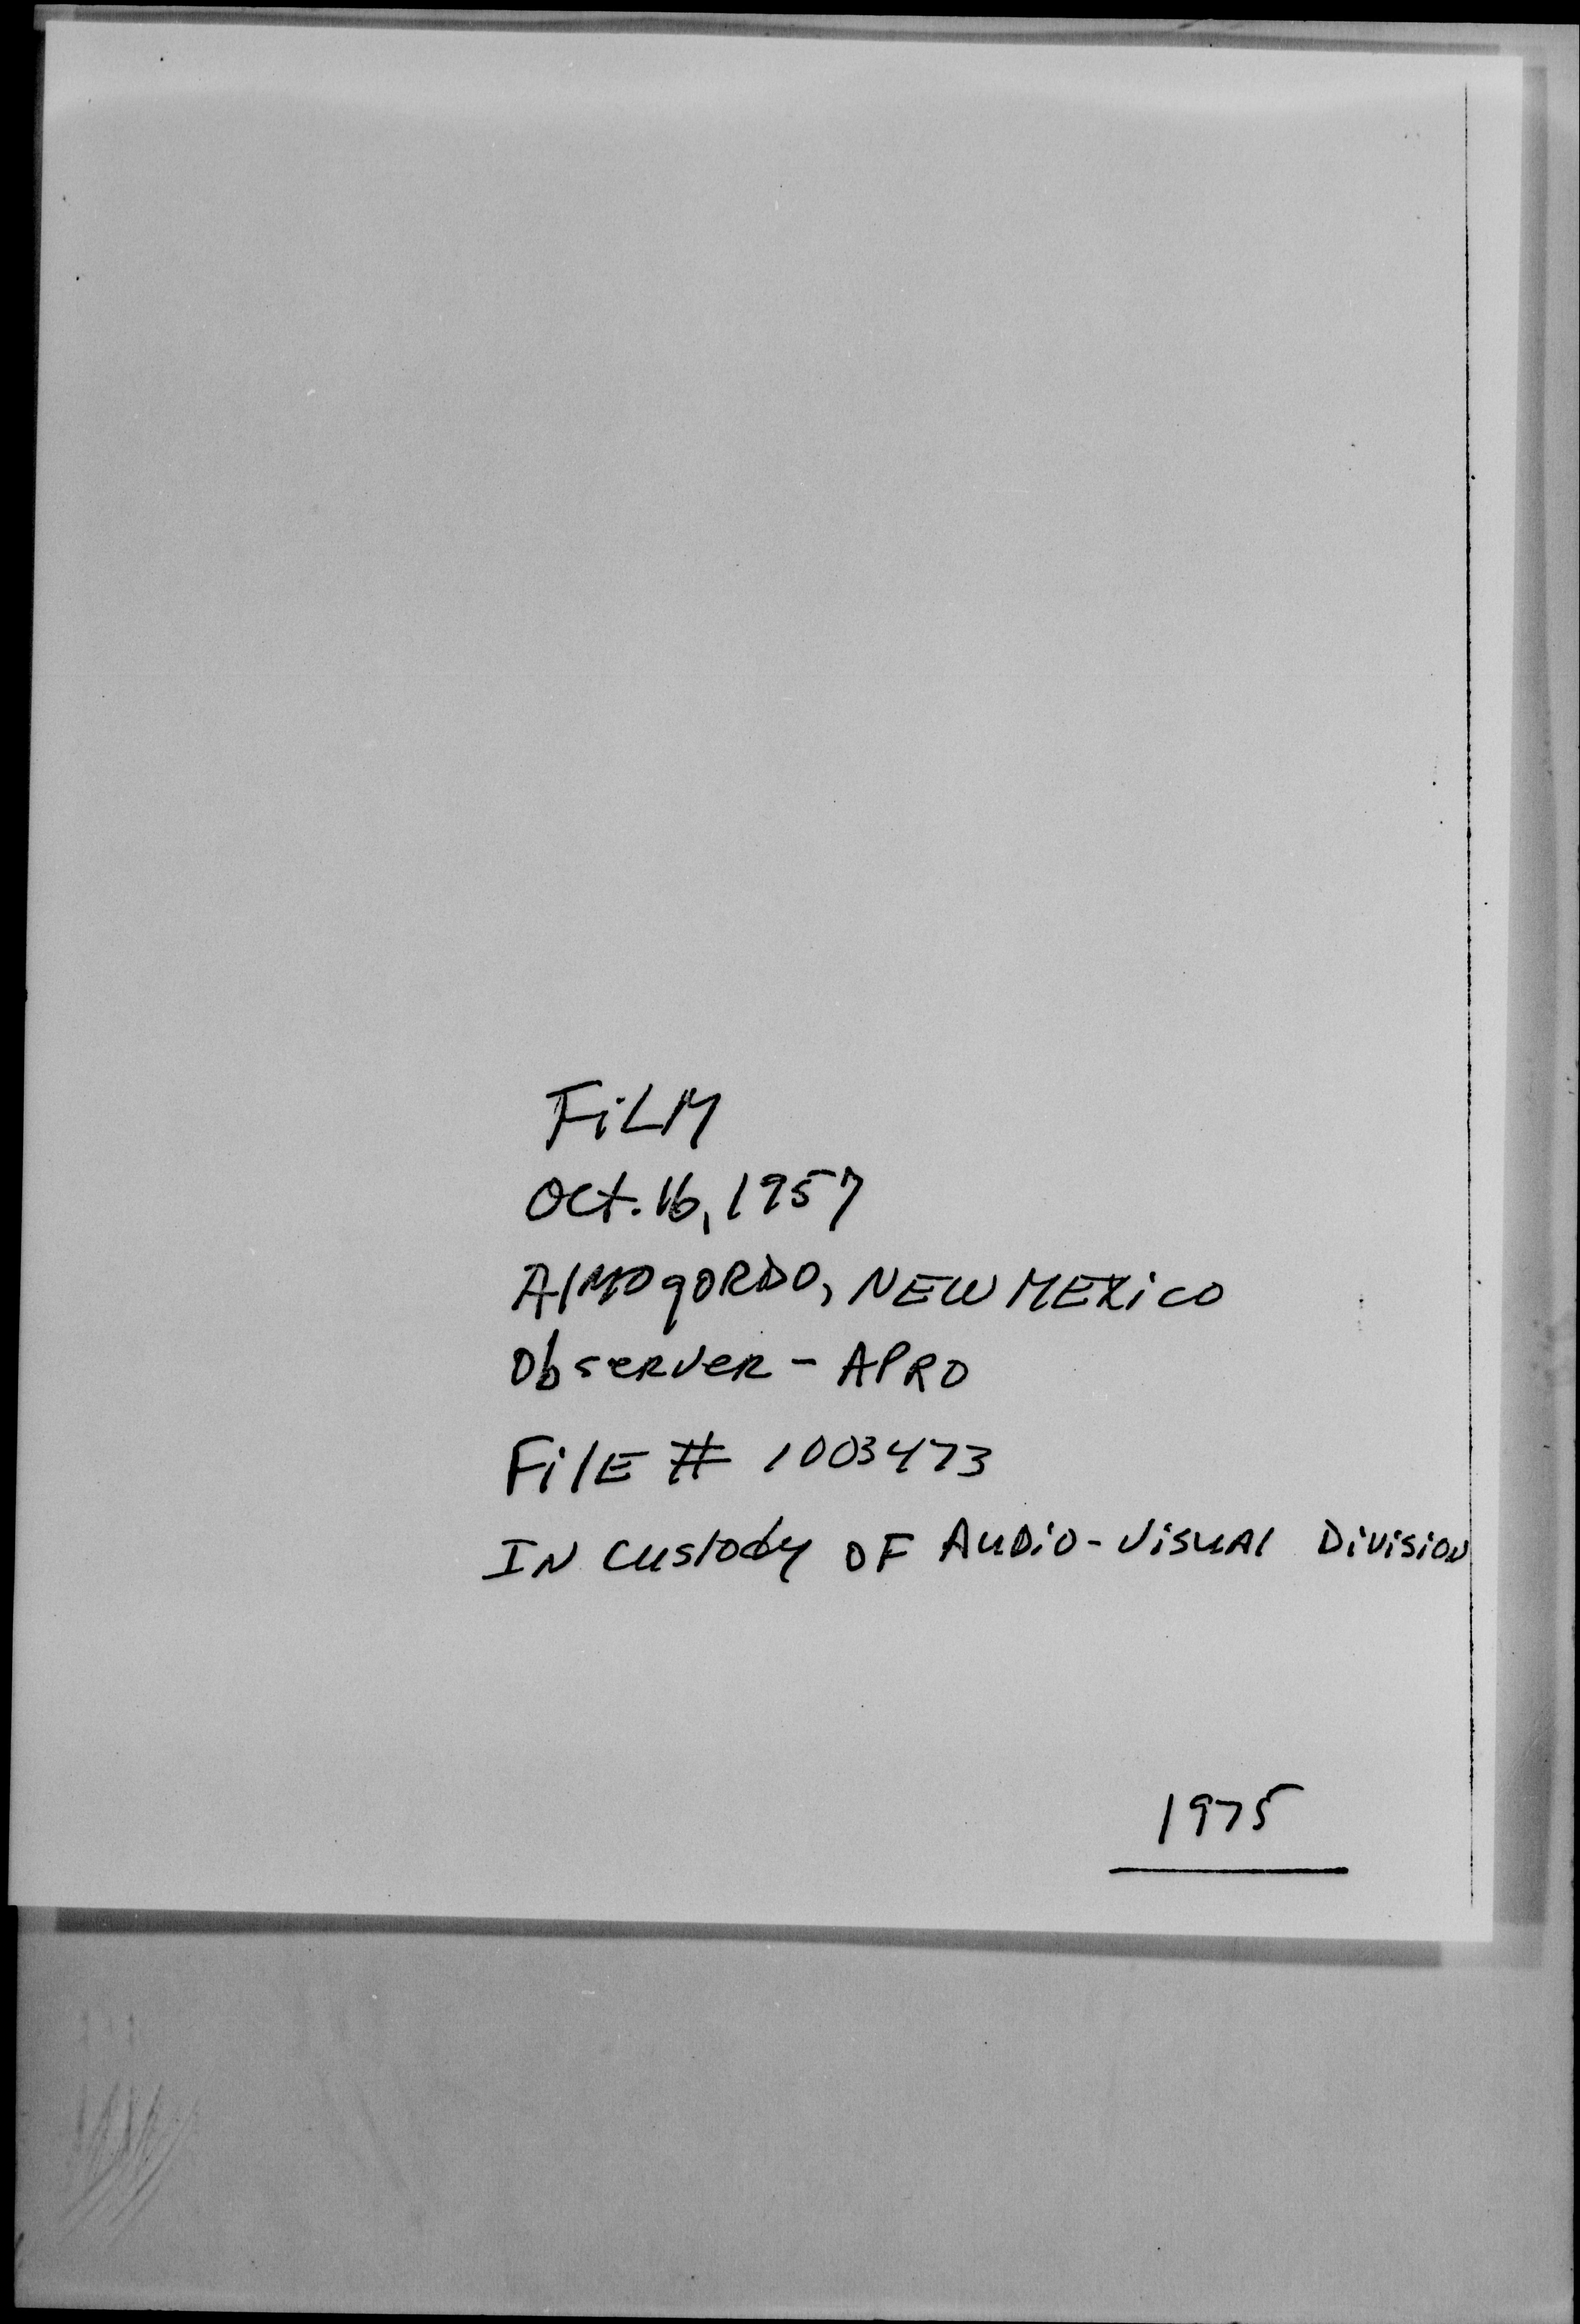 FiLM
Oct. 16, 1957
AlMOgORDO, NEW MEXiCO
Observer - APRO
FilE # 1003473
IN Custody OF AuDiO-VisuAl DivisioN
1975